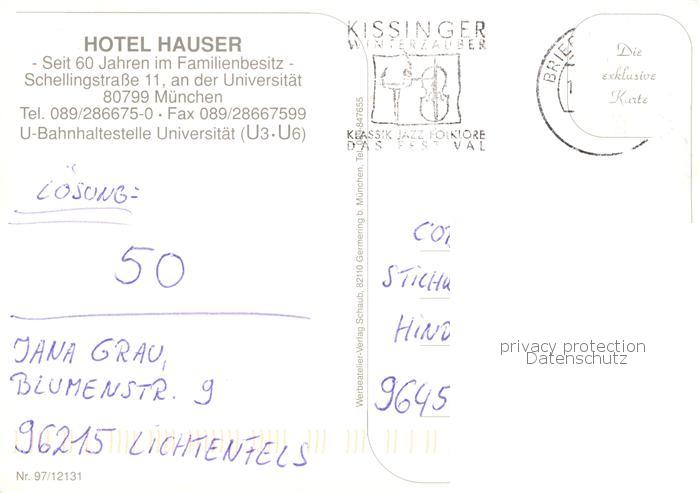 HOTEL HAUSER
- Seit 60 Jahren im Familienbesitz -
Schellingstraße 11, an der Universität
80799 München
Tel. 089/286675-0 · Fax 089/28667599
U-Bahnhaltestelle Universität (U3·U6)
LÖSUNG:
50
JANA GRAU,
BLUMENSTR. 9
96215 LICHTENFELS
Nr. 97/12131
Werbeatelier-Verlag Schaub, 82110 Germering b. München, Tel.
847655
KISSINGER
WINTERZAUBER
KLASSIK JAZZ FOLKLORE
DAS FESTIVAL
BRIEF
Die
exklusive
Karte
STICHW
HIND
9645
privacy protection
Datenschutz